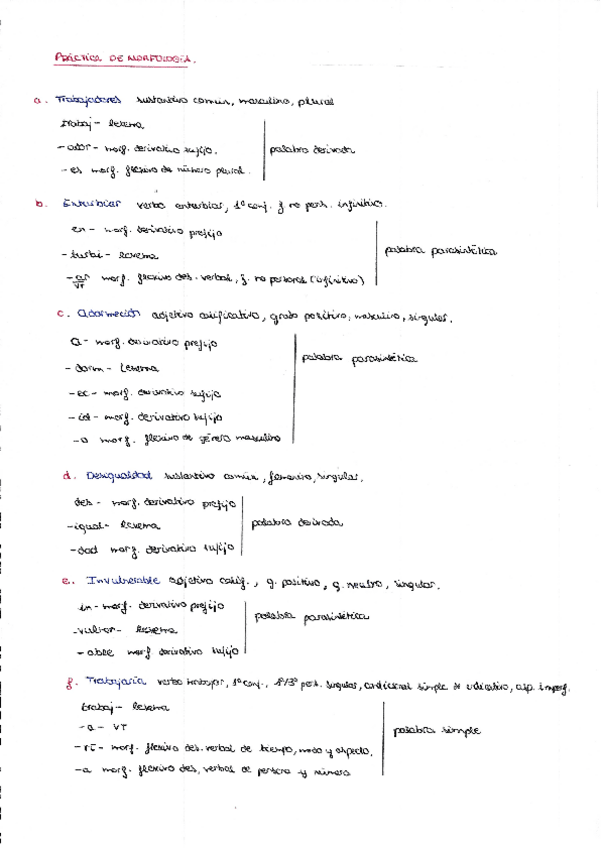 PRÁCTICA DE MORFOLOGÍA.
a. Trabajadores sustantivo común, masculino, plural
trabaj- lexema
-ador- morf. derivativo sufijo. palabra derivada
-es morf. flexivo de número plural.
b. Enturbiar verbo enturbiar, 1ª conj. f no pers. infinitivo.
en- morf. derivativo prefijo
-turbi- lexema palabra parasintética
-ar morf. flexivo des. verbal, f. no personal (infinitivo)
VT
c. Adormecido adjetivo calificativo, grado positivo, masculino, singular.
a- morf. derivativo prefijo palabra parasintética
-dorm- lexema
-ec- morf. derivativo sufijo
-id- morf. derivativo sufijo
-o morf. flexivo de género masculino
d. Desigualdad sustantivo común, femenino, singular.
des- morf. derivativo prefijo
-igual- lexema palabra derivada
-dad morf. derivativo sufijo
e. Invulnerable adjetivo calif., g. positivo, g. neutro, singular.
in- morf. derivativo prefijo palabra parasintética
lexema
-able morf derivativo sufijo
f. Trabajaría verbo trabajar, 1ª conj., 1ª/3ª pers. singular, condicional simple de indicativo, asp. imperf.
trabaj- lexema
-a- VT palabra simple
-rí- morf. flexivo des. verbal de tiempo, modo y aspecto.
-a morf. flexivo des. verbal de persona y número